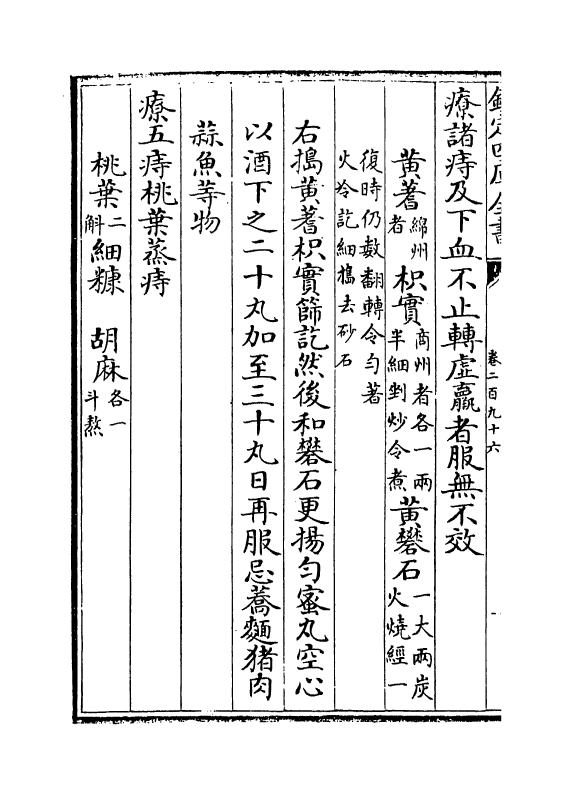 欽定四庫全書
卷二百九十六
療諸痔及下血不止轉虛羸者服無不效
黃蓍綿州者枳實商州者各一兩半細剉炒令煮黃礬石一大兩炭火燒經一
復時仍數翻轉令勻著火冷訖細搗去砂石
右搗黃蓍枳實篩訖然後和礬石更揚勻蜜丸空心
以酒下之二十丸加至三十丸日再服忌蕎麵猪肉
蒜魚等物
療五痔桃葉蒸痔
桃葉二斛細糠 胡麻各一斗熬